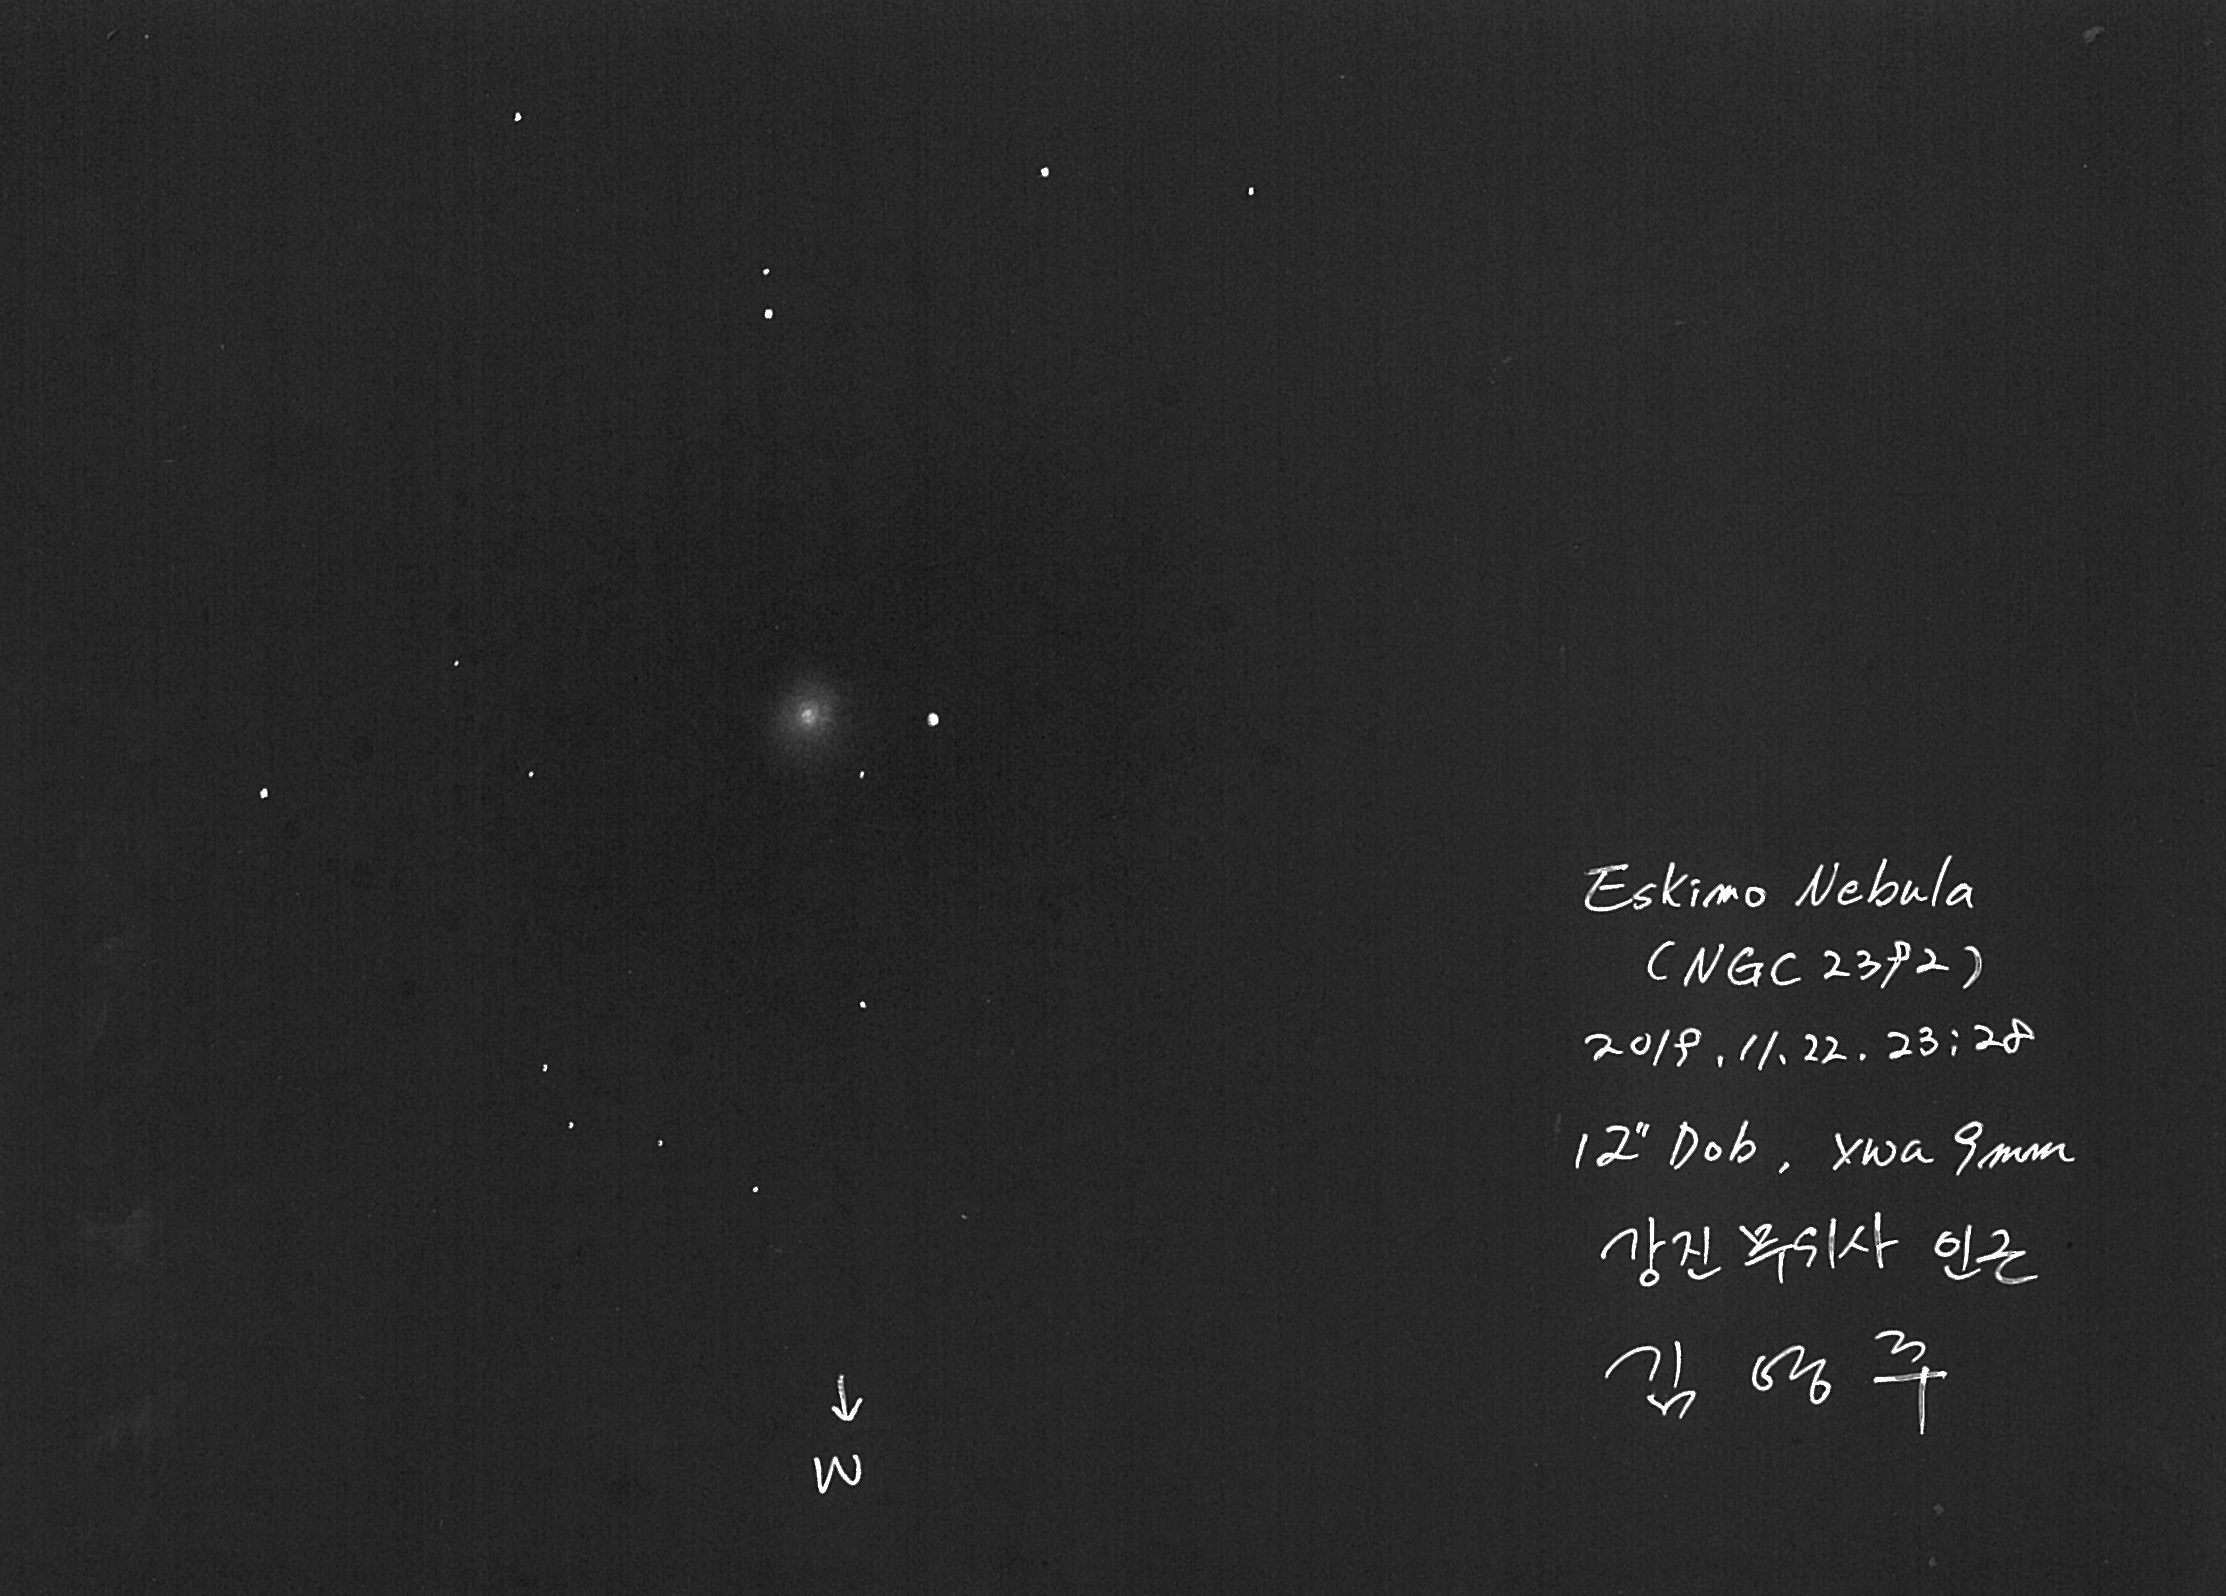 Eskimo Nebula
(NGC 2392)
2019. 11. 22. 23:28
12" Dob, xwa 9mm
강진 무위사 인근
김영주
↓
W